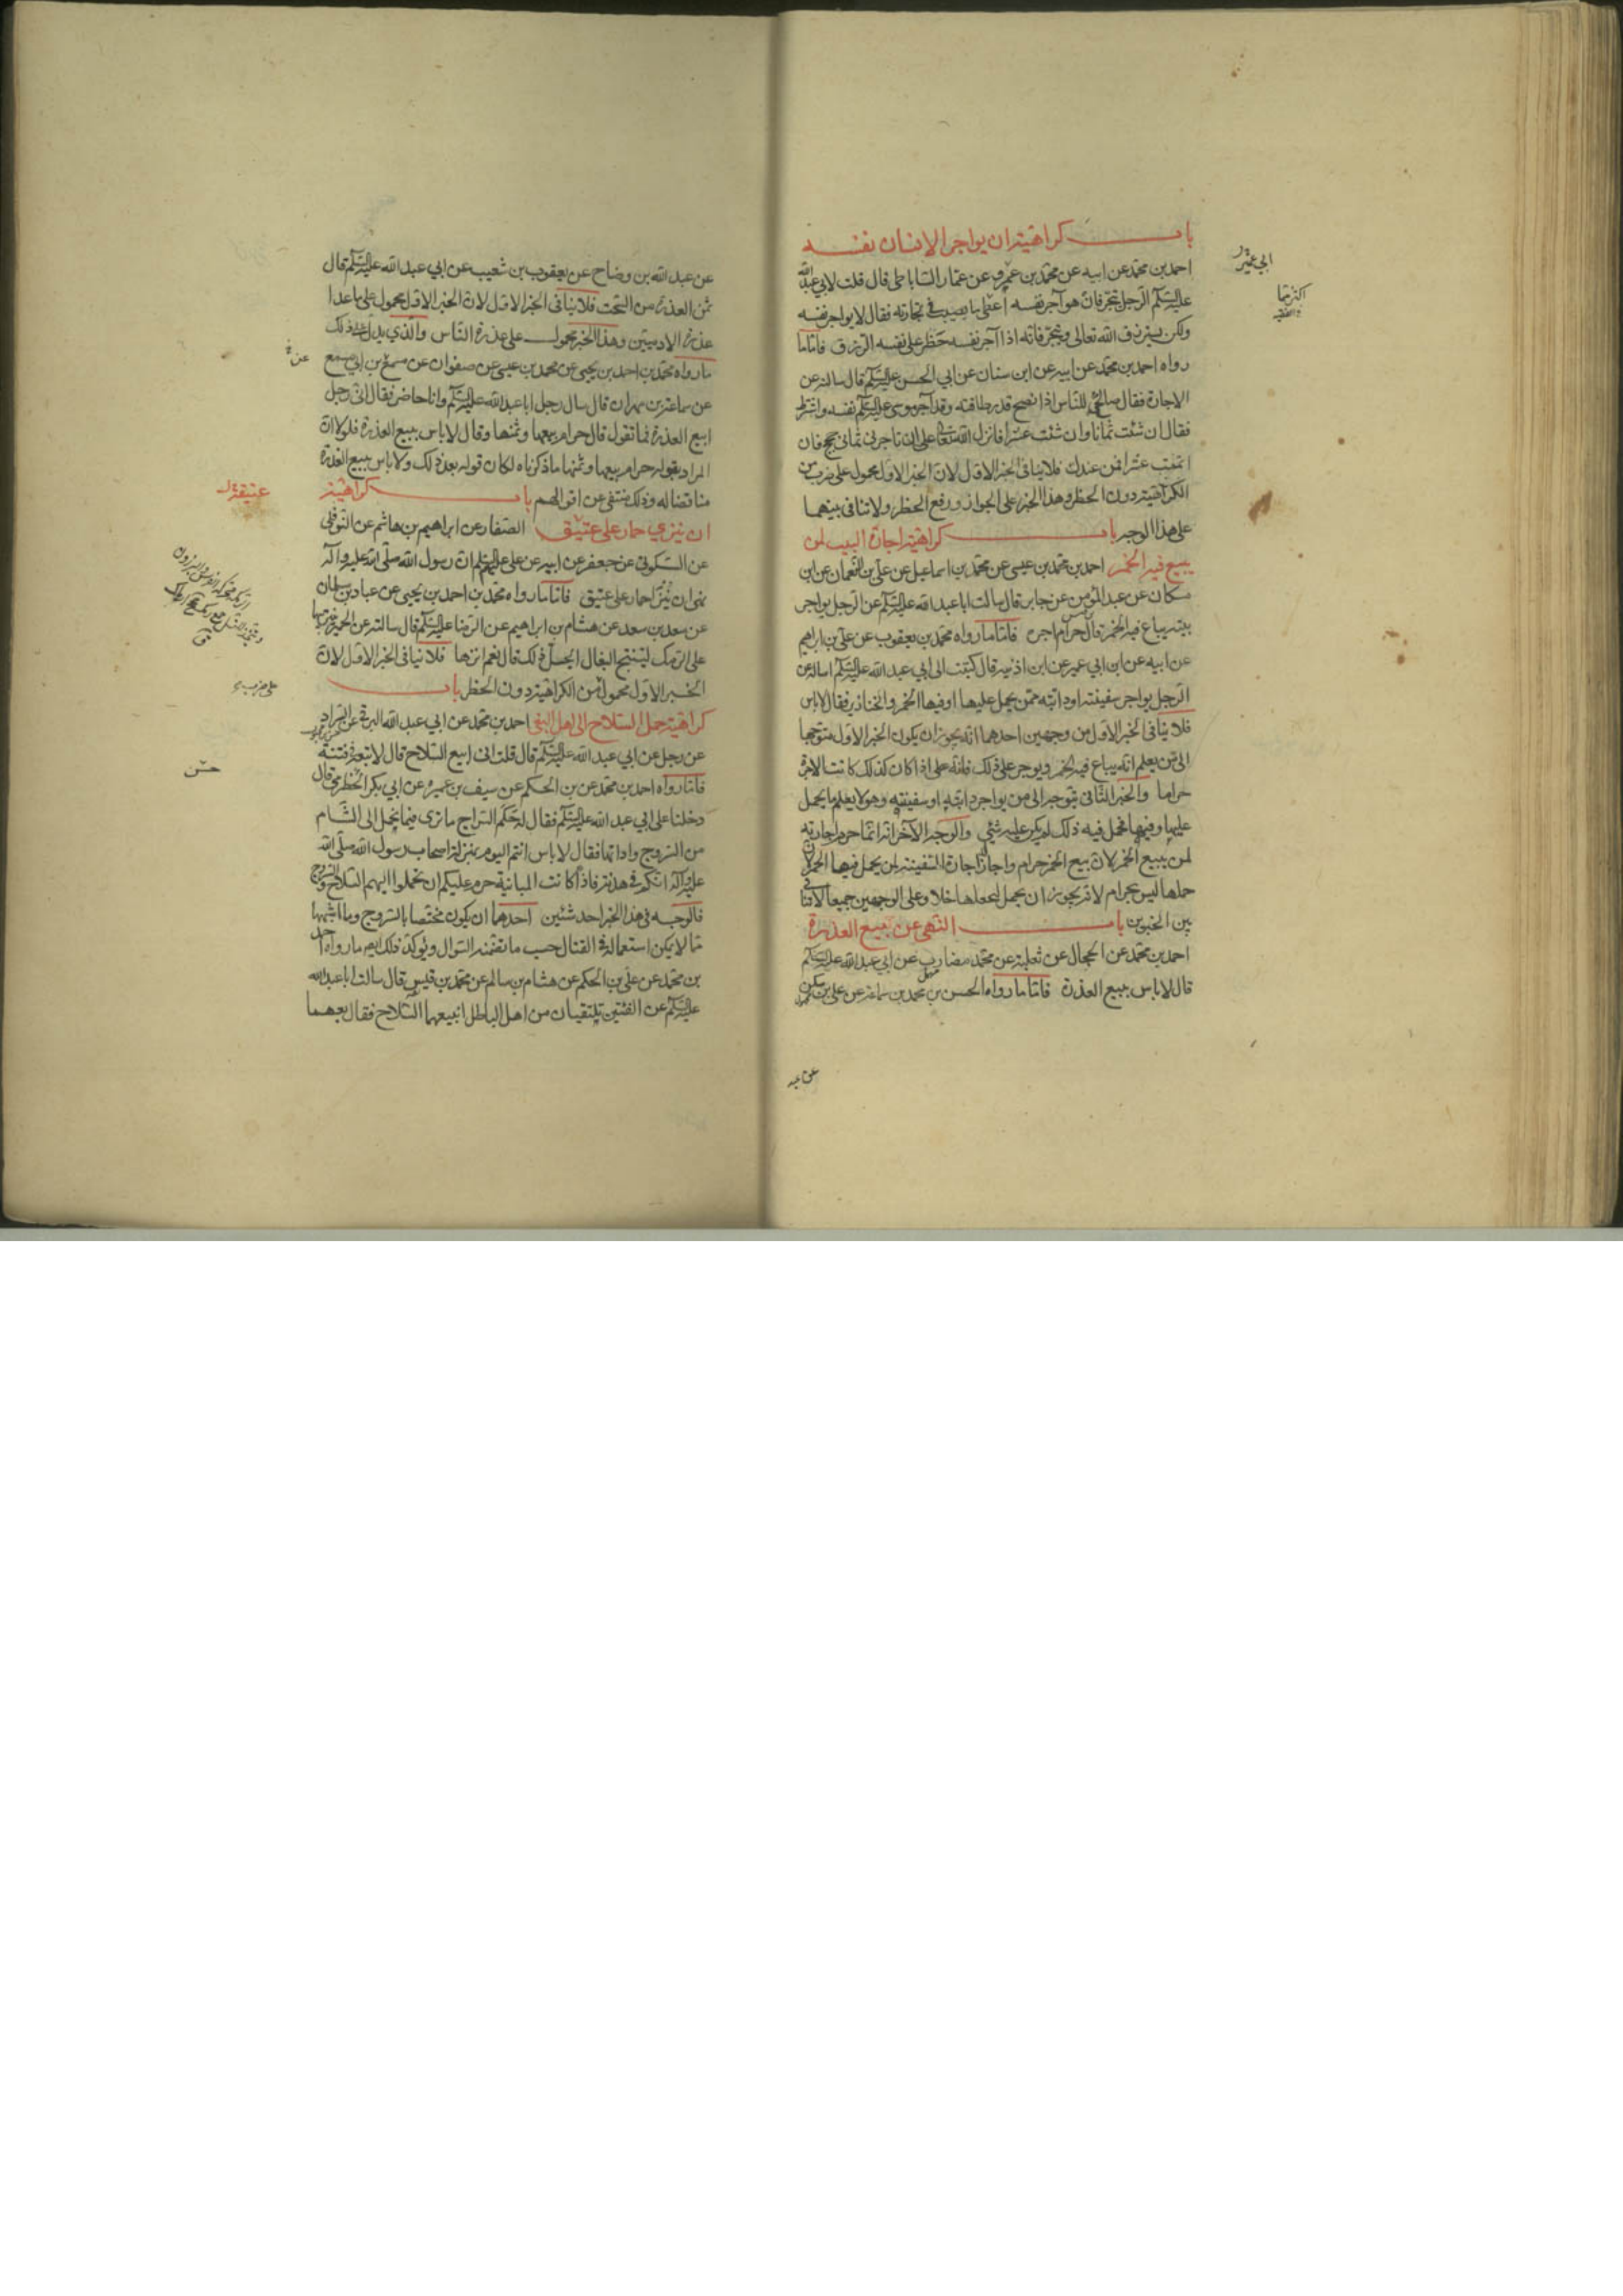 باب كراهية ان يواجر الانسان نفسه
احمد بن محمد عن ابيه عن محمد بن عمرو عن عمار الساباطى قال قلت لابي عبد الله
عليه السلم الرجل يتجر فان هو آجر نفسه اعطى ما يصيب في تجارته فقال لا يواجر نفسه
ولكن يسترزق الله تعالى ويتجر فانه اذا آجر نفسه حظر على نفسه الرزق فاما ما
رواه احمد بن محمد عن ابيه عن ابن سنان عن ابي الحسن عليه السلم قال سالته عن
الاجارة فقال صالح للناس اذا نصح قدر طاقته وقد آجر موسى عليه السلم نفسه واشترط
فقال ان شئت ثمانا وان شئت عشرا فانزل الله تعالى على ان تاجرنى ثمانى حجج فان
اتممت عشرا فمن عندك فلا ينافى الخبر الاول لان الخبر الاول محمول على ضرب من
الكراهية دون الحظر وهذا الخبر على الجواز ورفع الحظر ولا تنافى بينهما
على هذا الوجه باب كراهية اجارة البيت لمن
يبيع فيه الخمر احمد بن محمد بن عيسى عن محمد بن اسماعيل عن على بن النعمان عن ابن
مسكان عن عبد المؤمن عن جابر قال سالت ابا عبد الله عليه السلم عن الرجل يواجر
بيته يباع فيه الخمر قال حرام اجره فاما ما رواه محمد بن يعقوب عن على بن ابراهيم
عن ابيه عن ابن ابي عمير عن ابن اذينه قال كتبت الى ابي عبد الله عليه السلم اساله عن
الرجل يواجر سفينته او دابته ممن يحمل عليها او فيها الخمر والخنازير فقال لا باس
فلا ينافى الخبر الاول من وجهين احدهما انه يجوز ان يكون الخبر الاول متوجها
الى من يعلم انه يباع فيه الخمر ويوجر على ذلك فانه على اذا كان كذلك كانت الاجرة
حراما والخبر الثانى يتوجه الى من يواجر دابته او سفينته وهو لا يعلم ما يحمل
عليها وفيها فحمل فيه ذلك لم يكن عليه شئ والوجه الآخر انه انما حرم اجارته
لمن يبيع الخمر لان بيع الخمر حرام واجاز اجارة السفينة لمن يحمل فيها الخمر لان
حملها ليس بحرام لانه يجوز ان يحمل ليجعلها خلا وعلى الوجهين جميعا لا تنافى
بين الخبرين باب النهى عن بيع العذرة
احمد بن محمد عن الحجال عن ثعلبة عن محمد مضارب عن ابي عبد الله عليه السلم
قال لا باس ببيع العذرة فاما ما رواه الحسن بن محمد بن سماعة عن على بن سكن
عن عبد
عن عبد الله بن وضاح عن يعقوب بن شعيب عن ابي عبد الله عليه السلم قال
ثمن العذرة من السحت فلا ينافى الخبر الاول لان الخبر الاول محمول على ما عدا
عذرة الادميين وهذا الخبر محمول على عذرة الناس والذي يدل على ذلك
ما رواه محمد بن احمد بن يحيى عن محمد بن عيسى عن صفوان عن مسمع بن ابي مسمع
عن سماعة بن مهران قال سال رجل ابا عبد الله عليه السلم وانا حاضر فقال انى رجل
ابيع العذرة فما تقول قال حرام بيعها وثمنها وقال لا باس ببيع العذرة فلولا ان
المراد بقوله حرام بيعها وثمنها ما ذكرناه لكان قوله بعد ذلك ولا باس ببيع العذرة
مناقضا له وذلك منتفى عن اقوالهم باب كراهية
ان ينزي حمار على عتيق الصفار عن ابراهيم بن هاشم عن النوفلى
عن السكونى عن جعفر عن ابيه عن على عليهم السلم ان رسول الله صلى الله عليه وآله
نهى ان ينزا حمار على عتيق فاما ما رواه محمد بن احمد بن يحيى عن عباد بن سلمان
عن سعد بن سعد عن هشام بن ابراهيم عن الرضا عليه السلم قال سالته عن الحمير ننزيها
على الرمك لتنتج البغال ايحل ذلك قال نعم انزها فلا ينافى الخبر الاول لان
الخبر الاول محمول من الكراهية دون الحظر باب
كراهية حمل السلاح الى اهل البغى احمد بن محمد عن ابي عبد الله البرقى عن السراد
عن رجل عن ابي عبد الله عليه السلم قال قلت انى ابيع السلاح قال لا تبعه فى فتنة
فاما رواه احمد بن محمد عن بن الحكم عن سيف بن عميرة عن ابي بكر الحضرمى قال
دخلنا على ابي عبد الله عليه السلم فقال له حكم السراج ما ترى فيما يحمل الى الشام
من السروج واداتها فقال لا باس انتم اليوم بمنزلة اصحاب رسول الله صلى الله
عليه وآله انكم فى هدنة فاذا كانت المباينة حرم عليكم ان تحملوا اليهم السلاح والسروج
فالوجه فى هذا الخبر احد شئين احدهما ان يكون مختصا بالسروج وما اشبهها
مما لا يمكن استعماله فى القتال حسب ما تضمنه السوال ويوكد ذلك ايضا ما رواه احمد
بن محمد عن على بن الحكم عن هشام بن سالم عن محمد بن قيس قال سالت ابا عبد الله
عليه السلم عن الفئتين تلتقيان من اهل الباطل انبيعهما السلاح فقال بعهما